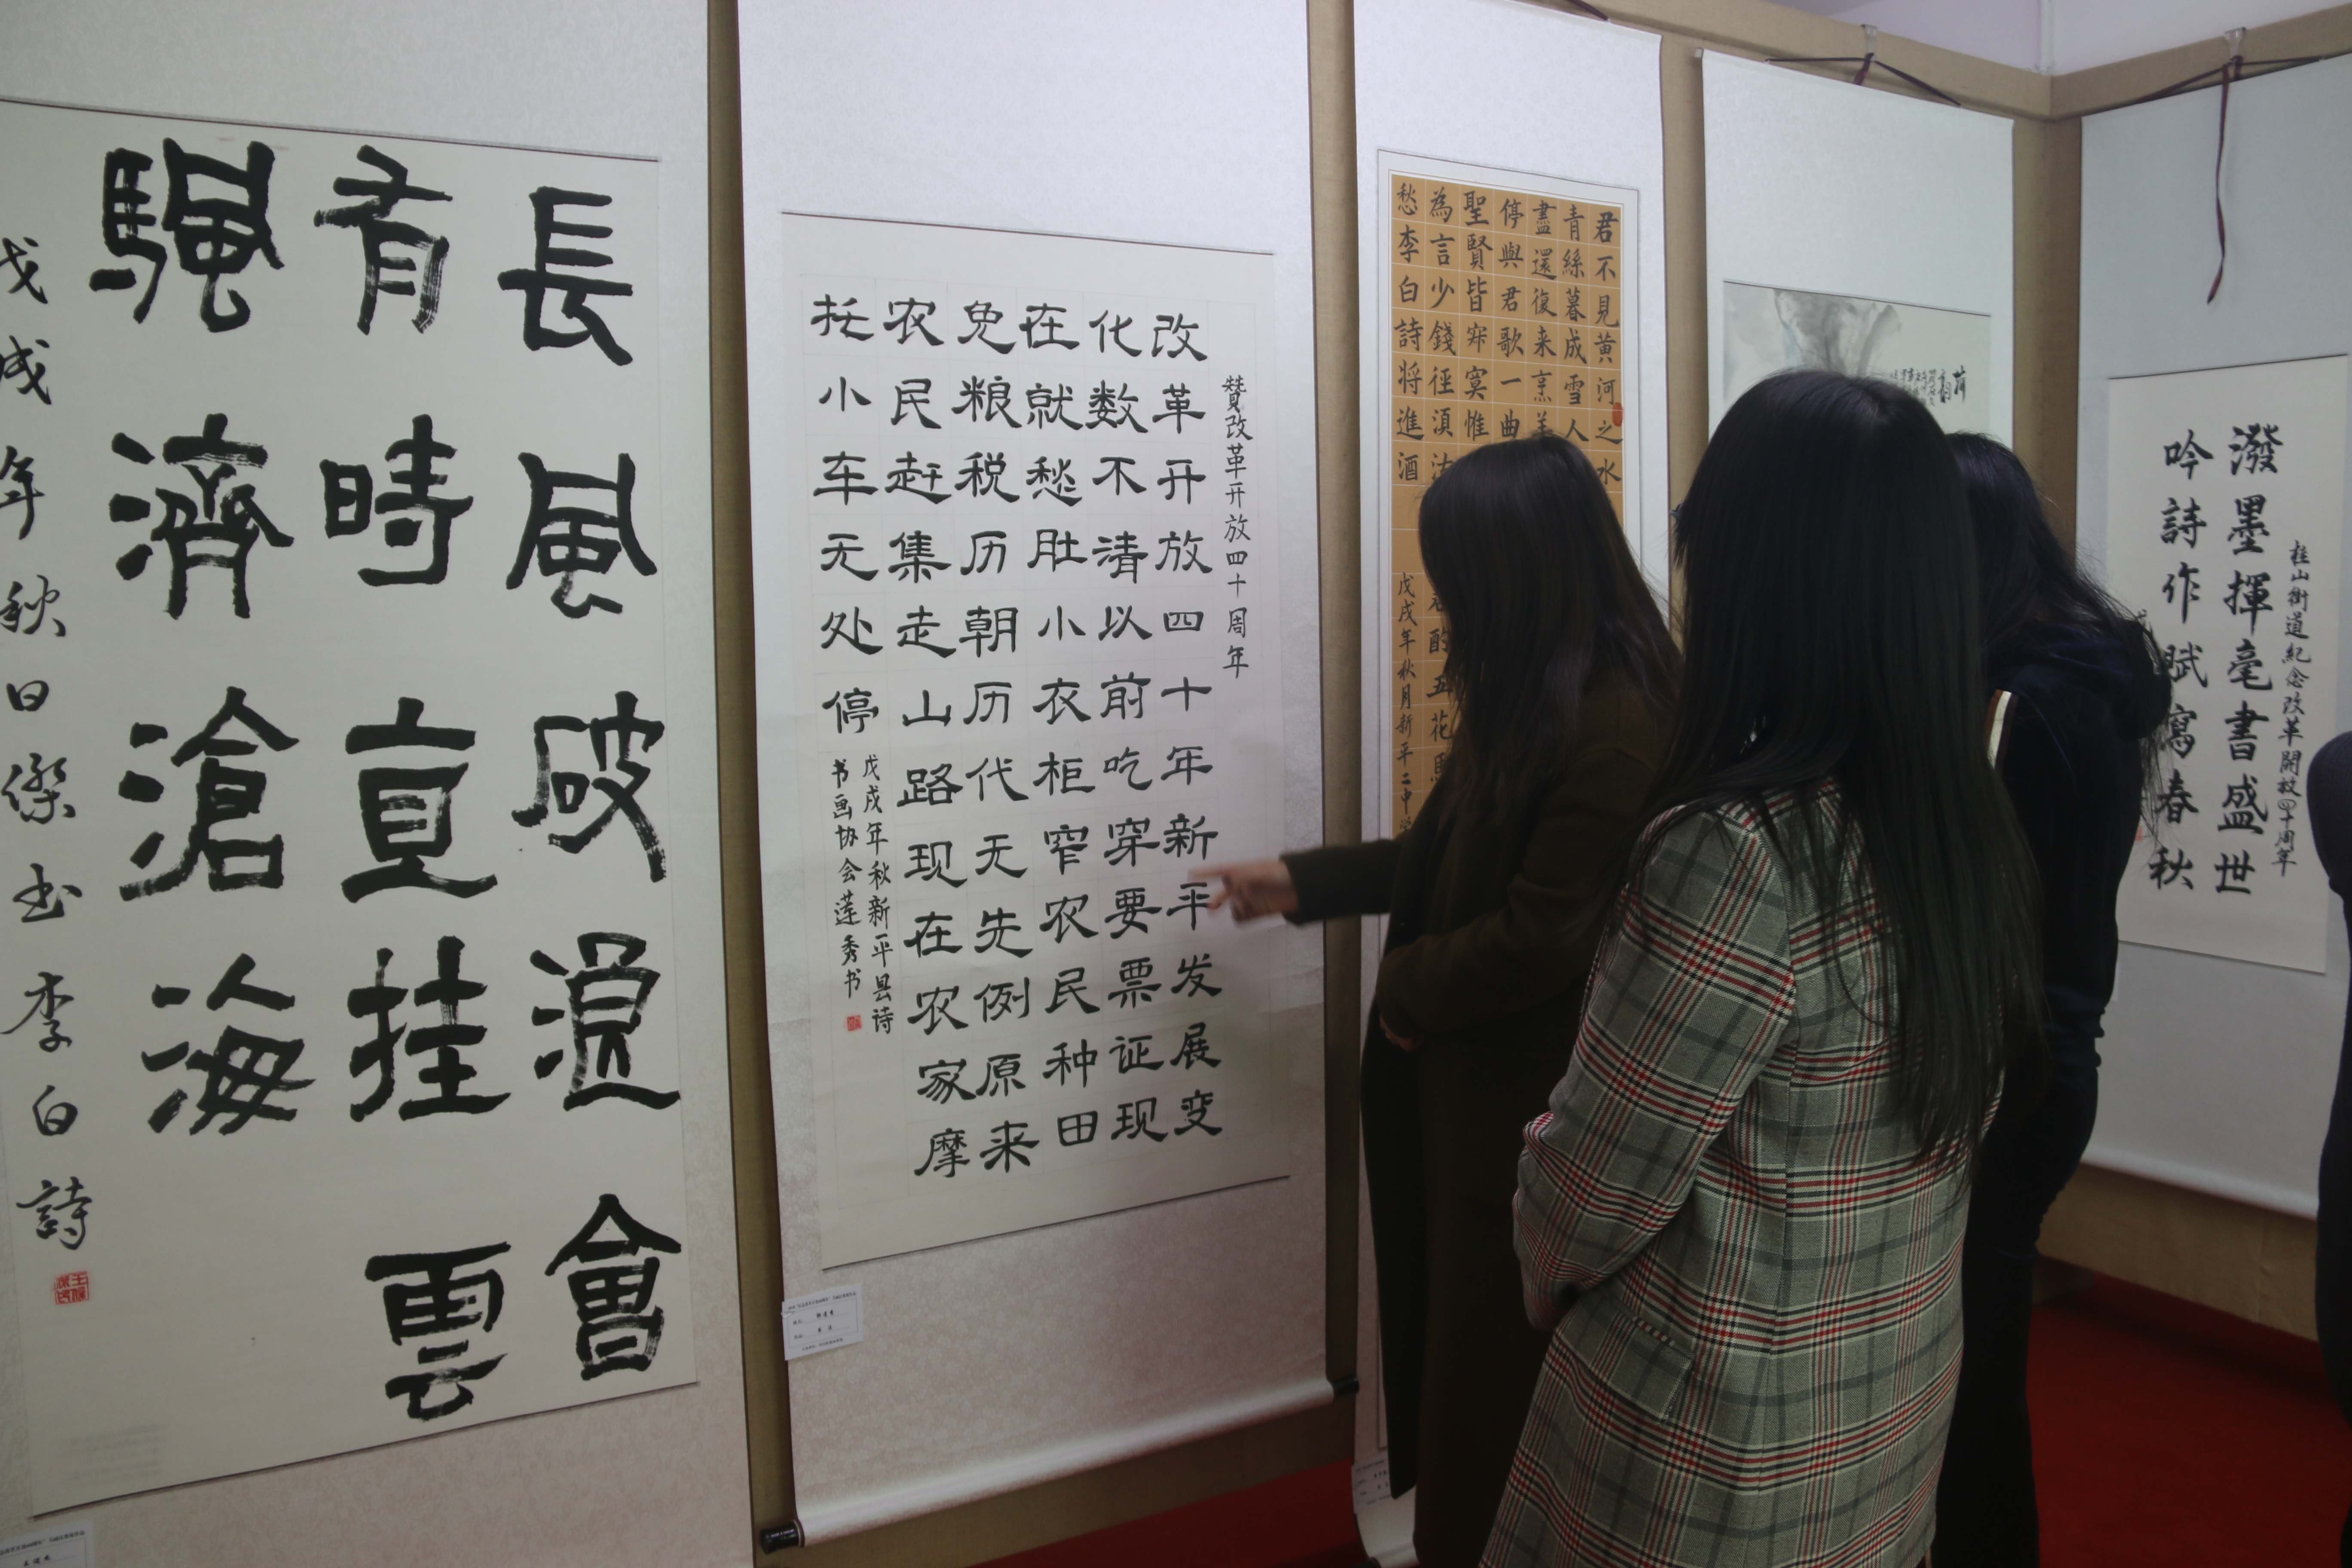 長風破浪會
有時直挂雲
颿濟滄海
戊戌年秋日傑书李白詩
赞改革开放四十周年
改革开放四十年新平发展变
化数不清以前吃穿要票证现
在就愁肚小衣柜窄农民种田
免粮税历朝历代无先例原来
农民赶集走山路现在农家摩
托小车无处停
戊戌年秋新平县诗
书画协会莲秀书
君不見黄河之水
青絲暮成雪人
盡還復来烹羊
停與君歌一曲
聖賢皆寂寞惟
為言少錢徑須沽
酌
五花馬
愁李白詩将進酒
戊戌年秋月新平二中
桂山街道紀念改革開放四十周年
潑墨揮毫書盛世
吟詩作賦寫春秋